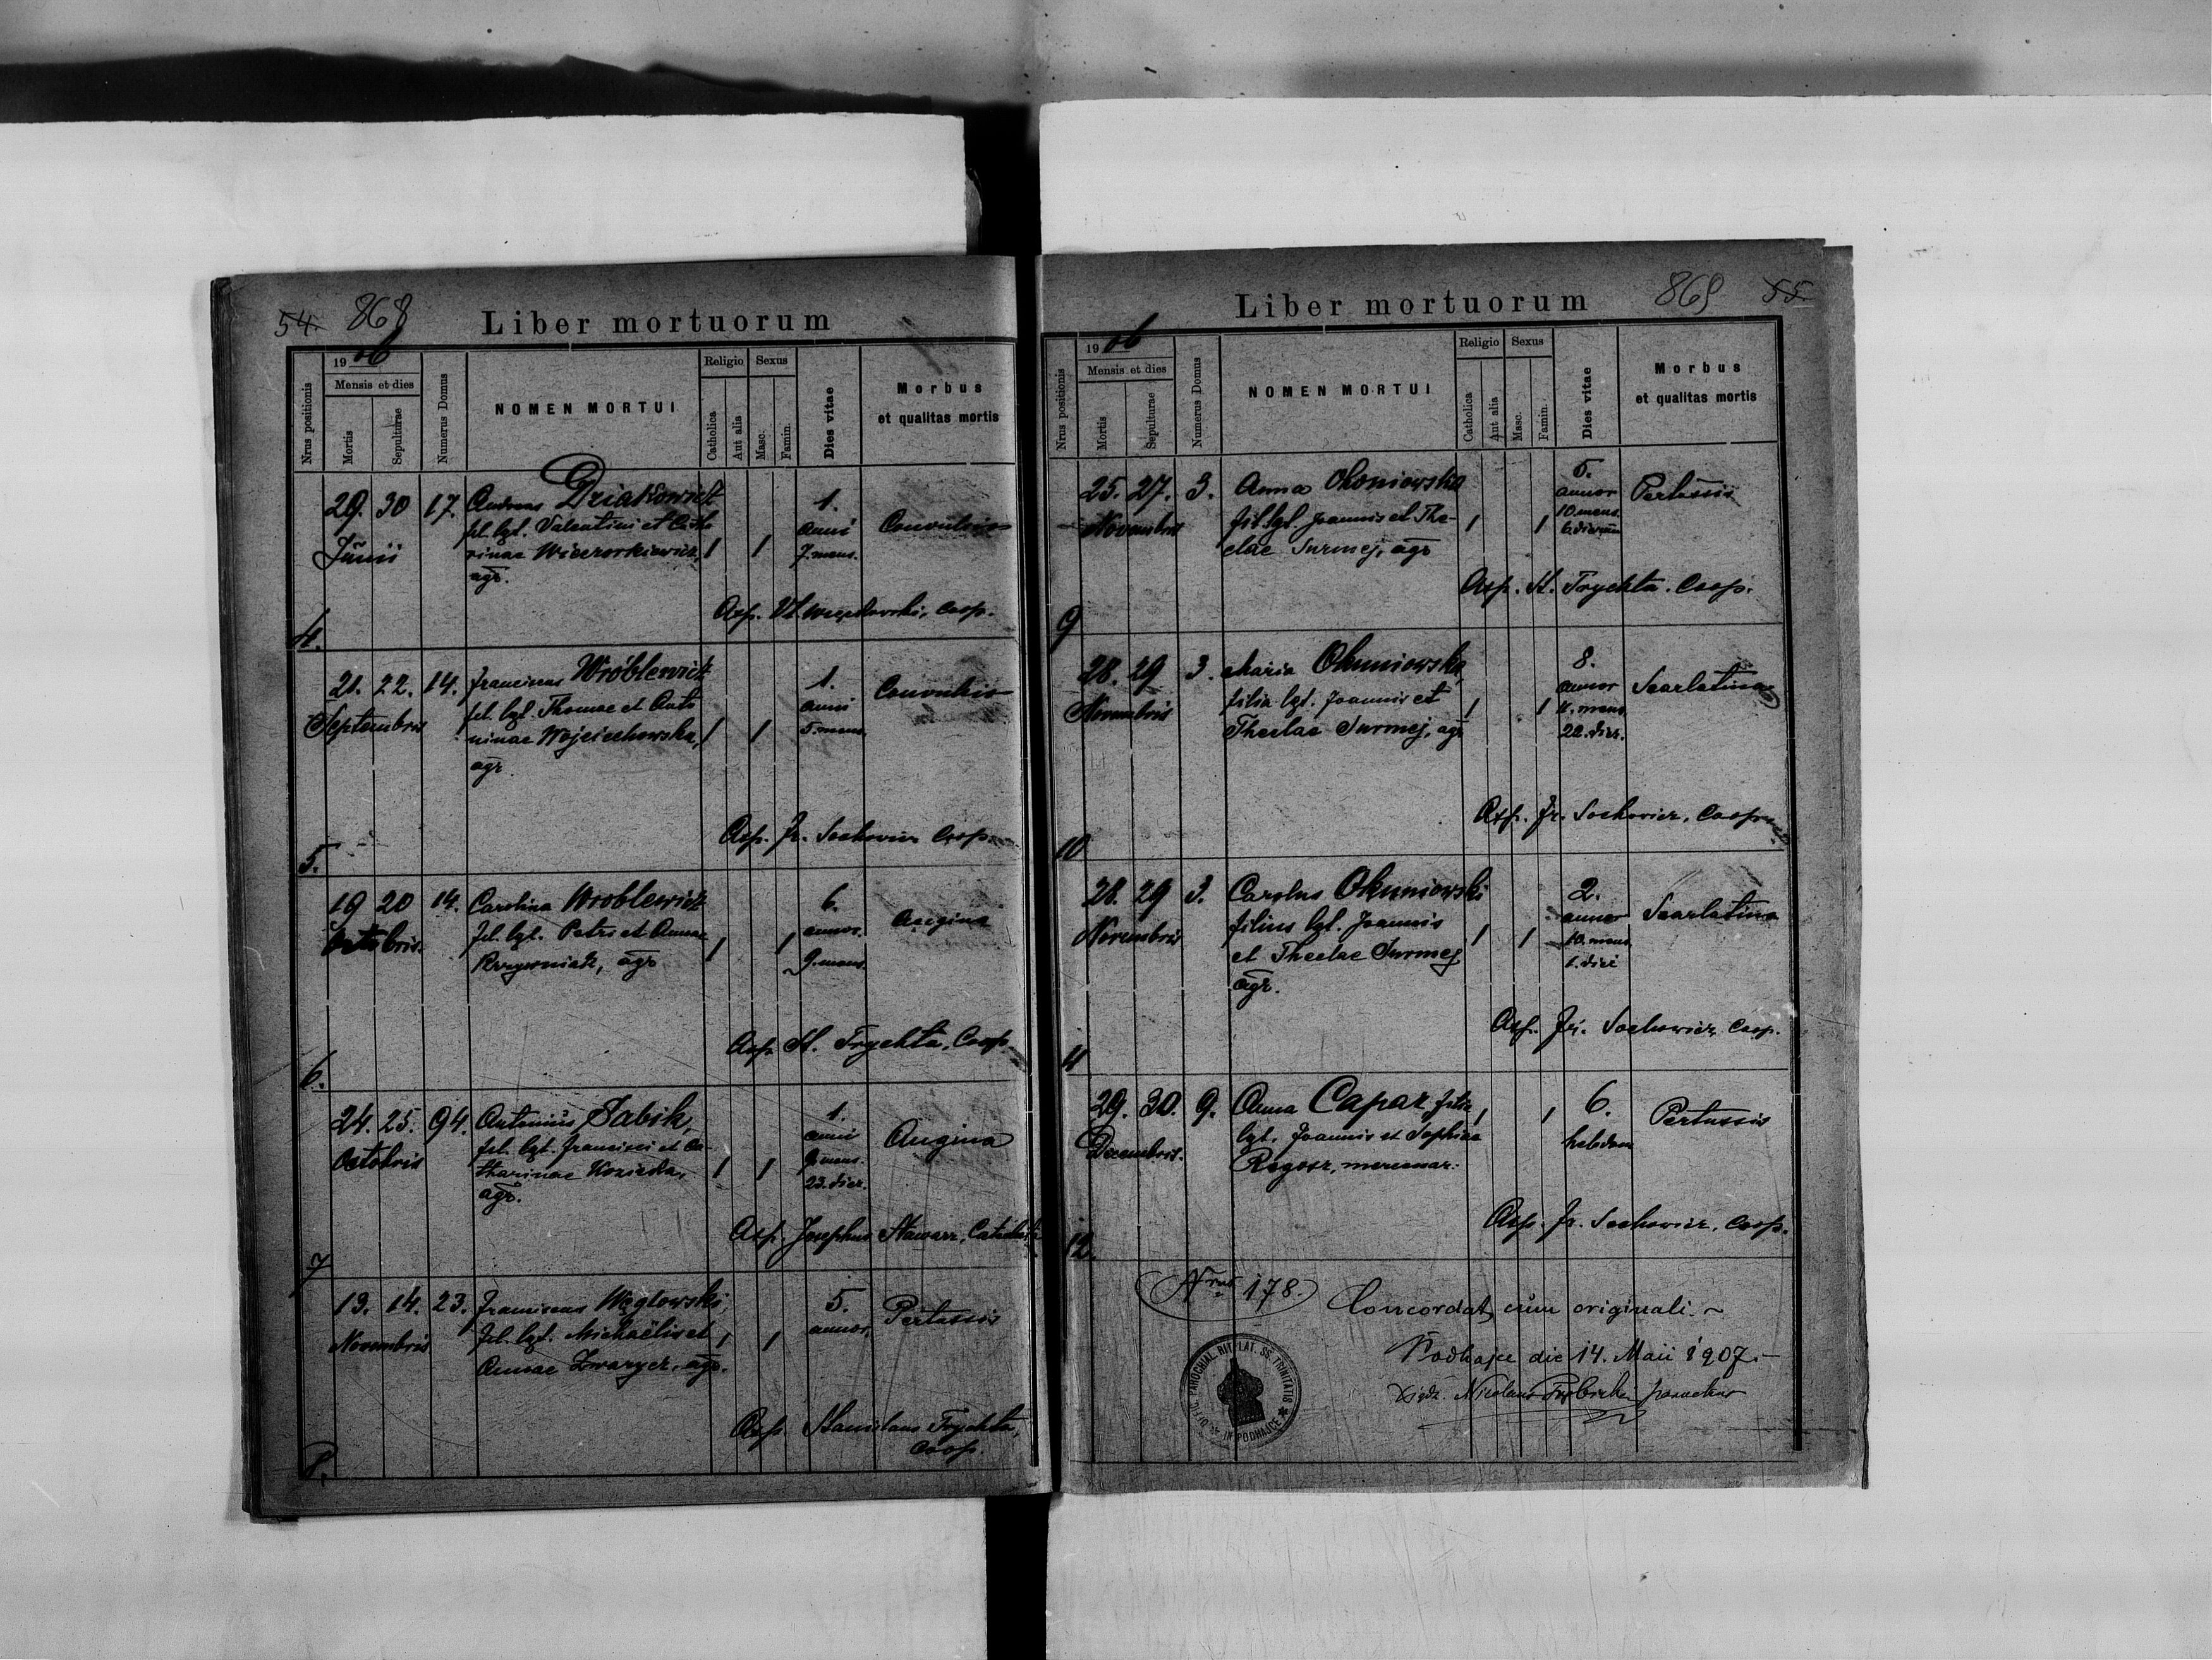 54. 868
Liber mortuorum
1906
Mensis et dies
Nrus positionis
Mortis
Sepulturae
Numerus Domus
NOMEN MORTUI
Religio
Catholica
Aut alia
Sexus
Masc.
Famin.
Dies vitae
Morbus
et qualitas mortis
4.
29. 30 17.
Junii
Andreas Dziakowicz
fil. lgt. Valentini et
agr.
1 1
1.
anni
7. mens.
Convulsio
Asp. Coop.
5.
21. 22. 14.
Septembris
Franciscus Wróblewicz
fil. lgt. Thomae et Anto
ninae Wojciechowska,
agr.
1 1
1.
anni
5. mens.
Convulsio
Asp. Fr. Sochowicz Coop.
6.
19 20 14.
Octobris
Carolina Wroblewicz
fil. lgt. Petri et Annae
agr.
1 1
6.
annor.
9. mens.
Angina
Asp. St. Trychta, Coop.
7
24. 25. 94.
Octobris
Antonius Sabik,
fil. lgt. Francisci et Ca-
tharinae
agr.
1 1
1.
anni
9. mens.
23. dier.
Angina
Asp. Josephus
8.
13. 14. 23.
Novembris
Franciscus Węglowski,
fil. lgt. Michaëlis et
Annae Zwarycz, agr.
1 1
5.
annor.
Pertussis
Asp. Stanislaus Trychta,
Coop.
869 55.
Liber mortuorum
1906
Mensis et dies
Nrus positionis
Mortis
Sepulturae
Numerus Domus
NOMEN MORTUI
Religio
Catholica
Aut alia
Sexus
Masc.
Famin.
Dies vitae
Morbus
et qualitas mortis
9
25. 27. 3.
Novembris
Anna Okoniowska
fil. lgt. Joannis et The-
clae Surmej, agr
1 1
5.
annor
10. mens.
6. dierum
Pertussis
Asp. St. Trychta. Coop.
10
28. 29 3.
Novembris
Maria Okuniowska,
filia lgt. Joannis et
Theclae Surmej, agr
1 1
8.
annor
mens.
22. dier.
Scarlatina
Asp. Fr. Sochowicz, Coop.
11
28. 29 3.
Novembris
Carolus Okuniowski
filius lgt. Joannis
et Theclae Surmej
agr.
1 1
2.
annor
10. mens.
1. diei
Scarlatina
Asp. Fr. Sochowicz, Coop.
12.
29. 30. 9.
Decembris.
Anna Capar, filia
lgt. Joannis et Sophiae
Rogosz, mercenar.
1 1
6.
hebdom
Pertussis
Asp. Fr. Sochowicz, Coop.
Nrus 178.
Concordat cum originali.
Podhajce die 14. Maii 1907.
Nicolaus
OFFIC. PAROCHIAL. RIT. LAT. SS. TRINITATIS
IN PODHAJCE